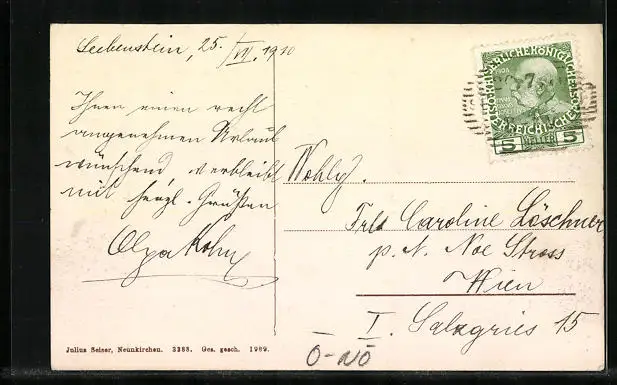 Seebenstein, 25./VII. 1910
Ihnen einen recht
angenehmen Urlaub
wünschend, verbleibt
mit herzl. Grüßen
Olga Kohn
Wohlg.
Frl. Caroline Löschner
p. A. Noe Stross
Wien
I. Salzgries 15
Julius Seiser, Neunkirchen. 3388. Ges. gesch. 1909.
O-NÖ
KAISERLICHEKÖNIGLICHE
ÖSTERREICHISCHE
5 HELLER 5